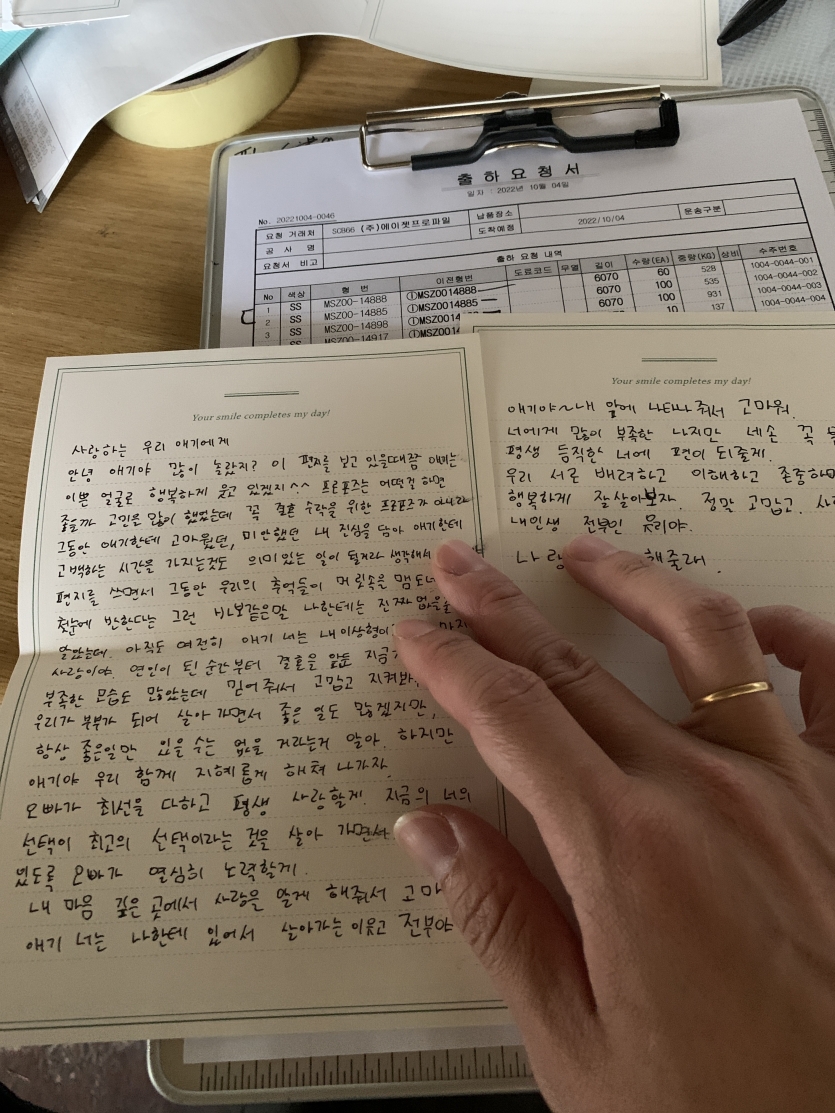 출하요청서
일자 : 2022년 10월 04일
No. 20221004-0046
요청 거래처 SCB66 (주)에이젯프로파일 납품장소 운송구분
공 사 명 도착예정 2022/10/04
요청서 비고
출하 요청 내역
No 색상 형 번 이전형번 도료코드 무열 길이 수량(EA) 중량(KG) 상비 수주번호
1 SS MSZ00-14888 ①MSZ0014888 6070 60 528 1004-0044-001
2 SS MSZ00-14885 ①MSZ0014885 6070 100 535 1004-0044-002
3 SS MSZ00-14898 6070 100 931 1004-0044-003
SS MSZ00-14917 10 137 1004-0044-004
Your smile completes my day!
사랑하는 우리 애기에게
안녕 애기야 많이 놀랐지? 이 편지를 보고 있을때쯤 애기는
이쁜 얼굴로 행복하게 웃고 있겠지^^ 프로포즈는 어떤걸 하면
좋을까 고민은 많이 했었는데 꼭 결혼 수락을 위한 프로포즈가 아니라
그동안 애기한테 고마웠던, 미안했던 내 진심을 담아 애기한테
고백하는 시간을 가지는것도 의미있는 일이 될거라 생각해서
편지를 쓰면서 그동안 우리의 추억들이 머릿속을 맴도네
첫눈에 반한다는 그런 바보같은말 나한테는 진짜 없을줄
알았는데. 아직도 여전히 애기 너는 내이상형이
사랑이야. 연인이 된 순간부터 결혼을 앞둔 지금
부족한 모습도 많았는데 믿어줘서 고맙고 지켜봐
우리가 부부가 되어 살아가면서 좋은 일도 많겠지만,
항상 좋은일만 있을 수는 없을 거라는거 알아. 하지만
애기야 우리 함께 지혜롭게 해쳐 나가자.
오빠가 최선을 다하고 평생 사랑할게. 지금의 너의
선택이 최고의 선택이라는 것을 살아 가면서
있도록 오빠가 열심히 노력할게.
내 마음 깊은 곳에서 사랑을 알게 해줘서 고마
애기 너는 나한테 있어서 살아가는 이유고 전부야
Your smile completes my day!
애기야~내 앞에 나타나줘서 고마워.
너에게 많이 부족한 나지만 네손 꼭
평생 듬직한 너에 편이 되줄게.
우리 서로 배려하고 이해하고 존중하며
행복하게 잘살아보자. 정말 고맙고.
내인생 전부인 유리야.
나랑 해줄래.